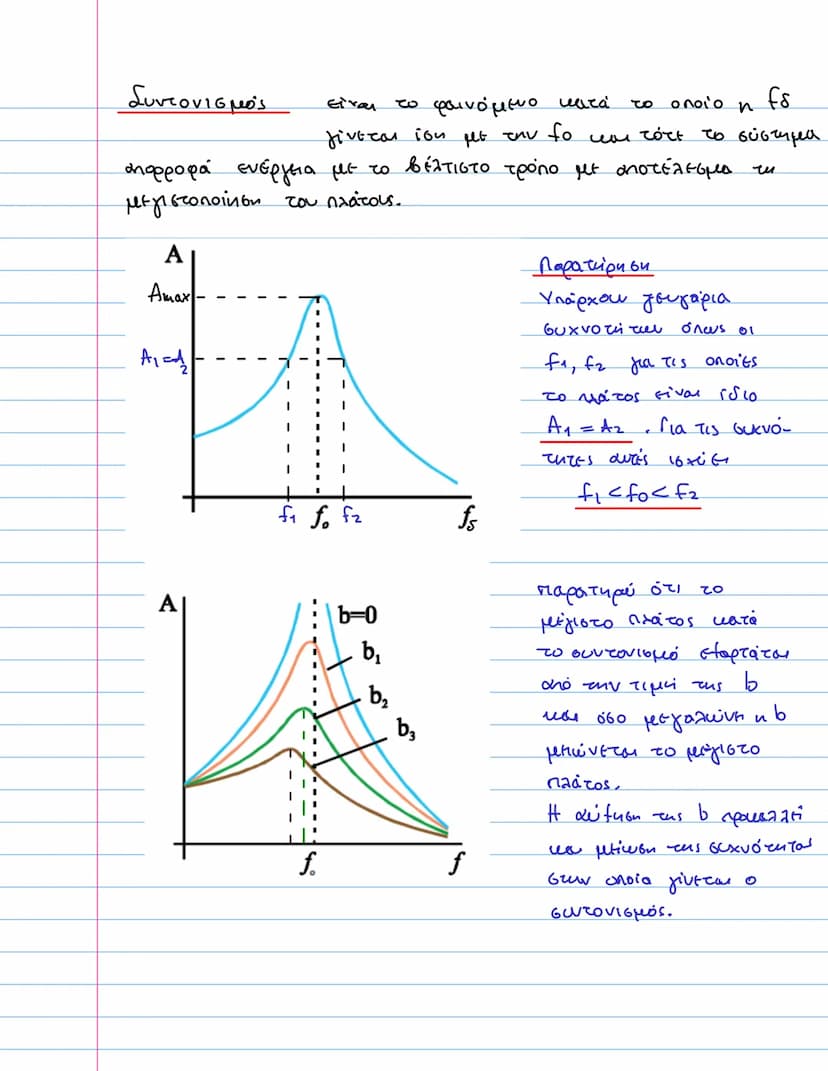 Συντονισμός είναι το φαινόμενο κατά το οποίο η fδ
γίνεται ίση με την fo και τότε το σύστημα
απορροφά ενέργεια με το βέλτιστο τρόπο με αποτέλεσμα τη
μεγιστοποίηση του πλάτους.
A
Amax
A1=A2
f1 fo f2 fδ
Παρατήρηση
Υπάρχουν ζευγάρια
συχνοτήτων όπως οι
f1, f2 για τις οποίες
το πλάτος είναι ίδιο
A1 = A2 . Για τις συχνό-
τητες αυτές ισχύει
f1 < fo < f2
A
b=0
b1
b2
b3
fo f
παρατηρώ ότι το
μέγιστο πλάτος κατά
το συντονισμό εξαρτάται
από την τιμή της b
και όσο μεγαλώνει η b
μειώνεται το μέγιστο
πλάτος.
Η αύξηση της b προκαλεί
και μείωση της συχνότητας
στην οποία γίνεται ο
συντονισμός.